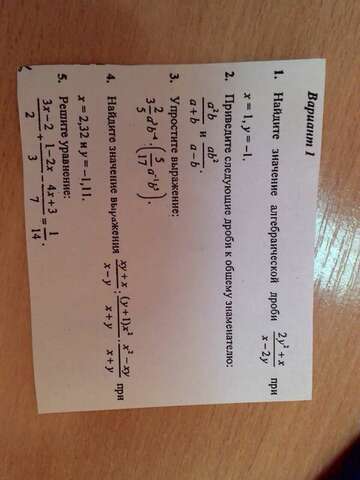 Вариант 1
1. Найдите значение алгебраической дроби (2y² + x)/(x − 2y) при
x = 1, y = −1.
2. Приведите следующие дроби к общему знаменателю:
a²b/(a + b) и ab²/(a − b).
3. Упростите выражение:
3 2/5 a³b⁻⁴ · (5/17 a⁻¹b³).
4. Найдите значение выражения (xy + x)/(x − y) : ((y + 1)x²)/(x + y) · (x² − xy)/(x + y) при
x = 2,32 и y = −1,11.
5. Решите уравнение:
(3x − 2)/2 + (1 − 2x)/3 − (4x + 3)/7 = 1/14.